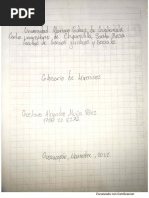 Universidad Mariano Gálvez de Guatemala
Centro Universitario de Chiquimulilla, Santa Rosa
Facultad de Ciencias Jurídicas y Sociales
Glosario de terminos
Gustavo Alejandro
Chiquimulilla, Noviembre, 2022
Escaneado con CamScanner